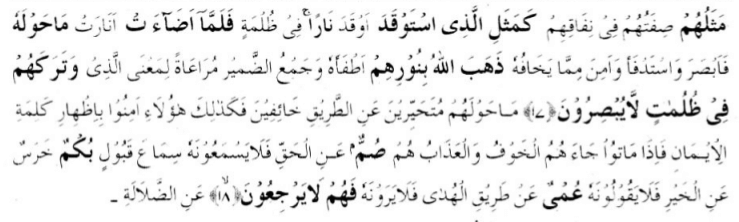 مَثَلُهُمْ صِفَتُهُمْ فِىْ نِفَاقِهِمْ كَمَثَلِ الَّذِى اسْتَوْقَدَ اَوْقَدَ نَارًا ۚ فِىْ ظُلْمَةٍ فَلَمَّاۤ اَضَآءَ تْ اَنَارَتْ مَاحَوْلَهٗ
فَاَبْصَرَ وَاسْتَدْفَأَ وَاَمِنَ مِمَّا يَخَافُهٗ ذَهَبَ اللّٰهُ بِنُوْرِهِمْ اَطْفَأَهٗ وَجَمْعُ الضَّمِيْرِ مُرَاعَاةً لِمَعْنَى الَّذِىْ وَتَرَكَهُمْ
فِىْ ظُلُمٰتٍ لَّايُبْصِرُوْنَ ﴿١٧﴾ مَاحَوْلَهُمْ مُتَحَيِّرِيْنَ عَنِ الطَّرِيْقِ خَائِفِيْنَ فَكَذٰلِكَ هٰؤُلَاءِ اٰمَنُوْا بِاِظْهَارِ كَلِمَةِ
الْاِيْمَانِ فَاِذَا مَاتُوْا جَاءَ هُمُ الْخَوْفُ وَالْعَذَابُ هُمْ صُمٌّۢ عَنِ الْحَقِّ فَلَايَسْمَعُوْنَهٗ سِمَاعَ قَبُوْلٍ بُكْمٌ خَرَسٌ
عَنِ الْخَيْرِ فَلَايَقُوْلُوْنَهٗ عُمْىٌ عَنْ طَرِيْقِ الْهُدٰى فَلَايَرَوْنَهٗ فَهُمْ لَايَرْجِعُوْنَ ﴿١٨﴾ عَنِ الضَّلَالَةِ ـ